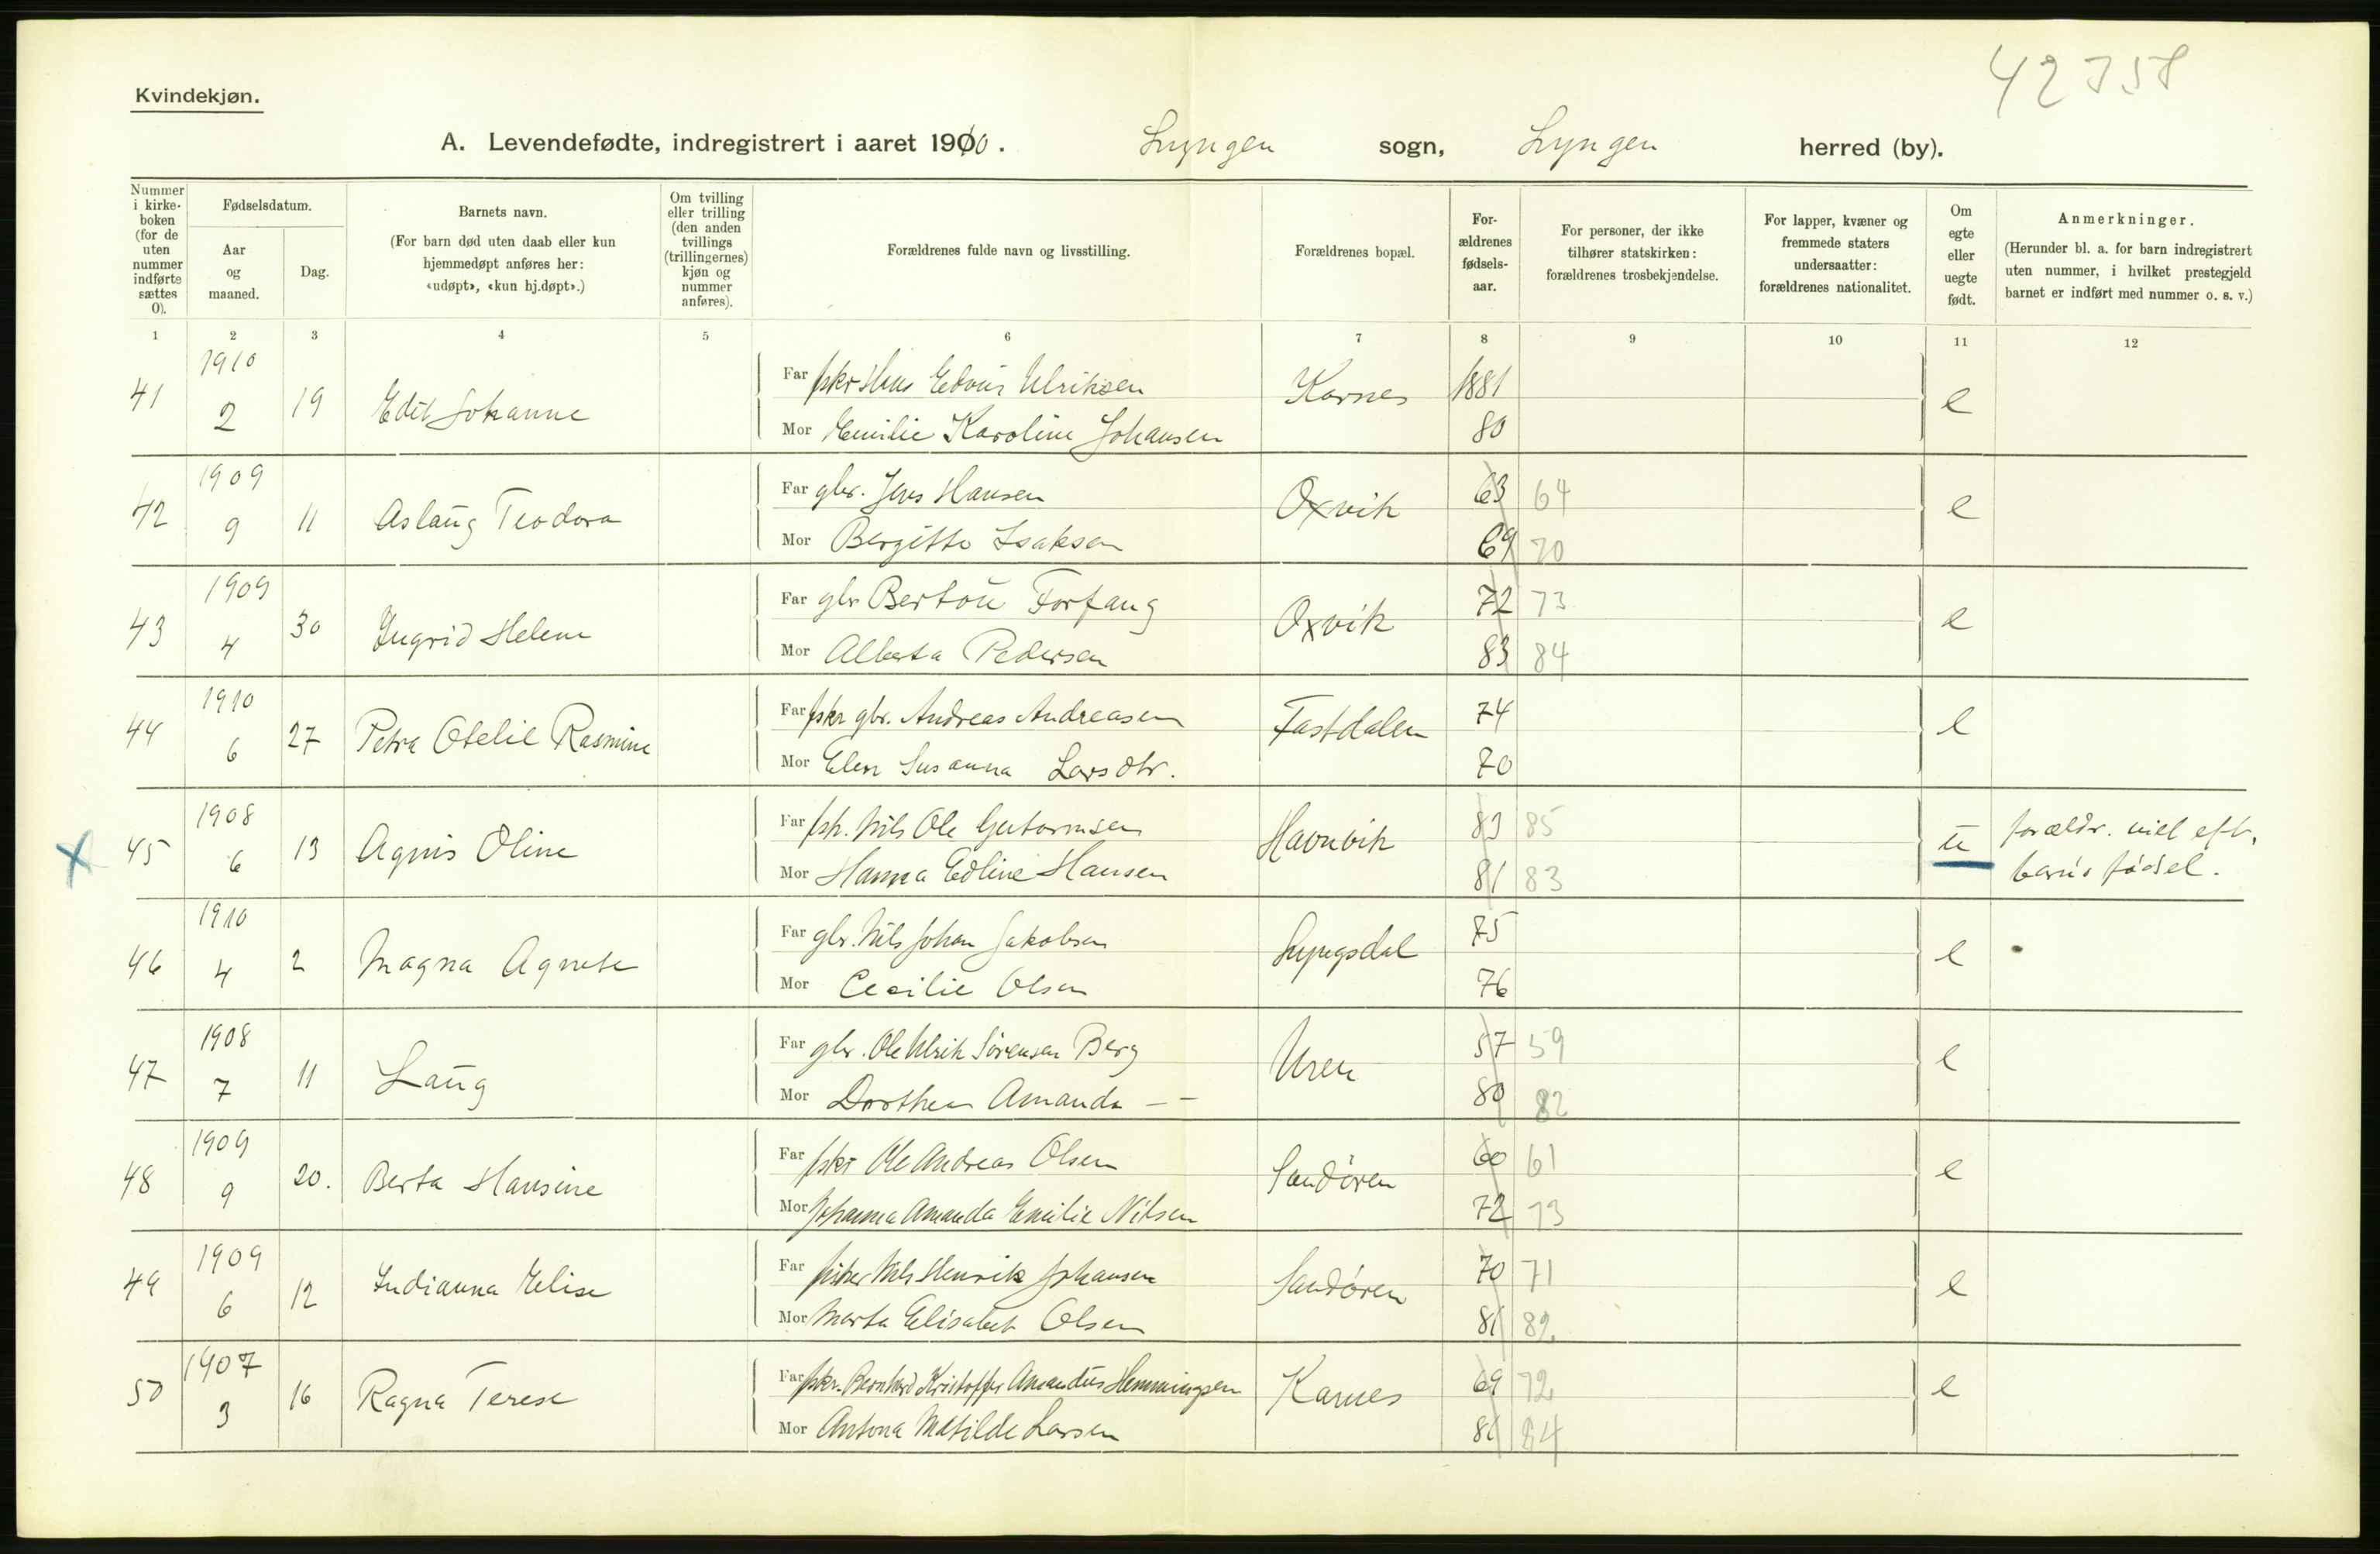 42758
Kvindekjøn.
A. Levendefødte, indregistrert i aaret 1910. Lyngen sogn, Lyngen herred (by).
Nummer i kirke-boken (for de uten nummer indførte sættes 0).
Fødselsdatum.
Aar og maaned.
Dag.
Barnets navn.
(For barn død uten daab eller kun hjemmedøpt anføres her: «udøpt», «kun hj.døpt».)
Om tvilling eller trilling (den anden tvillings (trillingernes) kjøn og nummer anføres).
Forældrenes fulde navn og livsstilling.
Forældrenes bopæl.
For-ældrenes fødsels-aar.
For personer, der ikke tilhører statskirken: forældrenes trosbekjendelse.
For lapper, kvæner og fremmede staters undersaatter: forældrenes nationalitet.
Om egte eller uegte født.
Anmerkninger.
(Herunder bl. a. for barn indregistrert uten nummer, i hvilket prestegjeld barnet er indført med nummer o. s. v.)
1 2 3 4 5 6 7 8 9 10 11 12
41 1910 2 19 Edit Johanne
Far fskr Hans Edvin Ulriksen Karnes 1881 e
Mor Emilie Karoline Johansen 80
42 1909 9 11 Aslaug Teodora
Far gbr. Jens Hansen Oxvik 63 64 e
Mor Bergitte Isaksen 69 70
43 1909 4 30 Ingrid Helene
Far gbr Berton Forfang Oxvik 72 73 e
Mor Alberta Pedersen 83 84
44 1910 6 27 Petra Otelie Rasmine
Far fskr gbr. Andreas Andreasen Fastdalen 74 e
Mor Elen Susanna Larsdtr. 70
X 45 1908 6 13 Agnis Oline
Far fsk. Nils Ole Guttormsen Havnvik 83 85 u forældr. viet eft.
Mor Hanna Edline Hansen 81 83 barns fødsel.
46 1910 4 2 Magna Agnete
Far gbr. Nils Johan Jakobsen Lyngsdal 75 e
Mor Cecilie Olsen 76
47 1908 7 11 Laug
Far gbr. Ole Ulrik Sørensen Berg Uren 57 59 e
Mor Dorthea Amanda - - 80 82
48 1909 9 20. Berta Hansine
Far fskr Ole Andreas Olsen Sandøren 60 61 e
Mor Johanna Amanda Emilie Nilsen 72 73
49 1909 6 12 Indianna Elise
Far fisker Nils Henrik Johansen Sandøren 70 71 e
Mor Marta Elisabet Olsen 81 82
50 1907 3 16 Ragna Terese
Far fskr. Bernhard Kristoffer Amandus Hemmingsen Karnes 69 72 e
Mor Antona Matilde Larsen 81 84